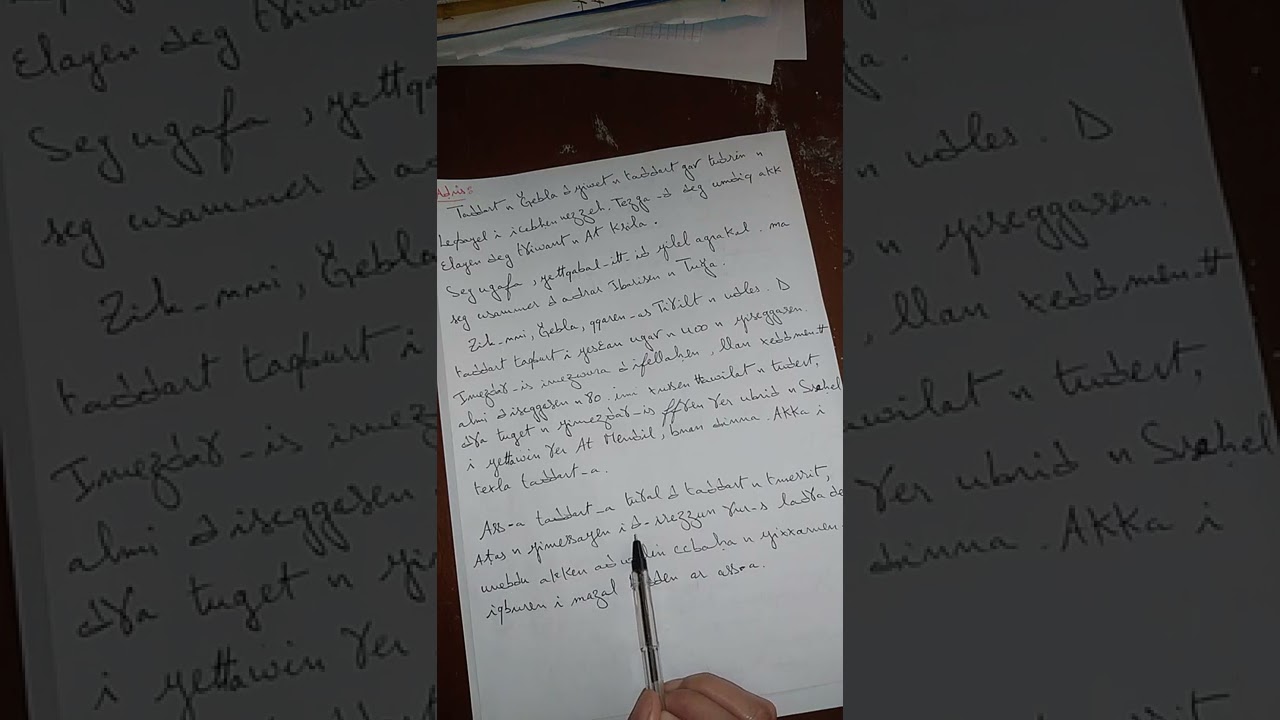 Adris
Taddart n Ɛebla d yiwet n taddart gar tudrin n
Leqbayel i icebḥen nezzeh. Tezga-d deg umḍiq akk
Elayen deg tɣiwant n At Ksila.
Seg ugafa, yettqabal-itt-id yilel agrakal. ma
seg usammer d adrar Ibarisen n Tuǧa.
Zik-nni, Ɛebla, qqaren-as Tiɣilt n udles. D
taddart taqburt i yesɛan ugar n 400 n yiseggasen.
Imezdaɣ-is imezwura d ifellaḥen, llan xeddmen-tt
almi d iseggasen n 80. imi xusen ttawilat n tudert,
dɣa tuget n yimezdaɣ-is ffɣen ɣer ubrid n Ssaḥel
i yettawin ɣer At Mendil, bnan dinna. Akka i
texla taddart-a.
Ass-a taddart-a tuɣal d taddart n tmerrit,
Aṭas n yimerrayen i d-irezzun ɣur-s ladɣa deg
unebdu akken ad walin ccbaḥa n yixxamen
iqburen i mazal bedden ar ass-a.